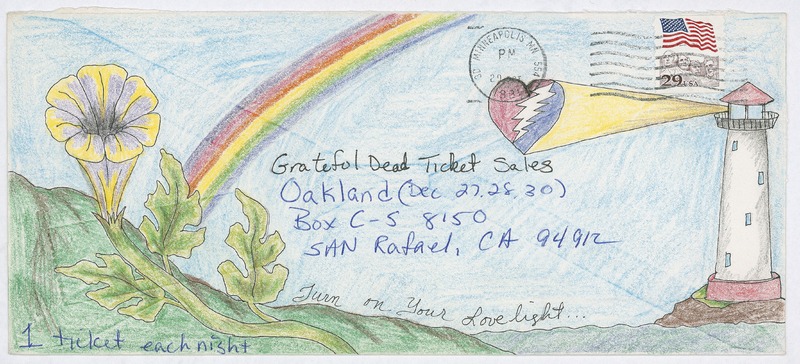 MINNEAPOLIS MN 554
PM
29 USA
Grateful Dead Ticket Sales
Oakland (Dec 27, 28, 30)
Box C-S 8150
SAN Rafael, CA 94912
Turn on Your Lovelight...
1 ticket each night